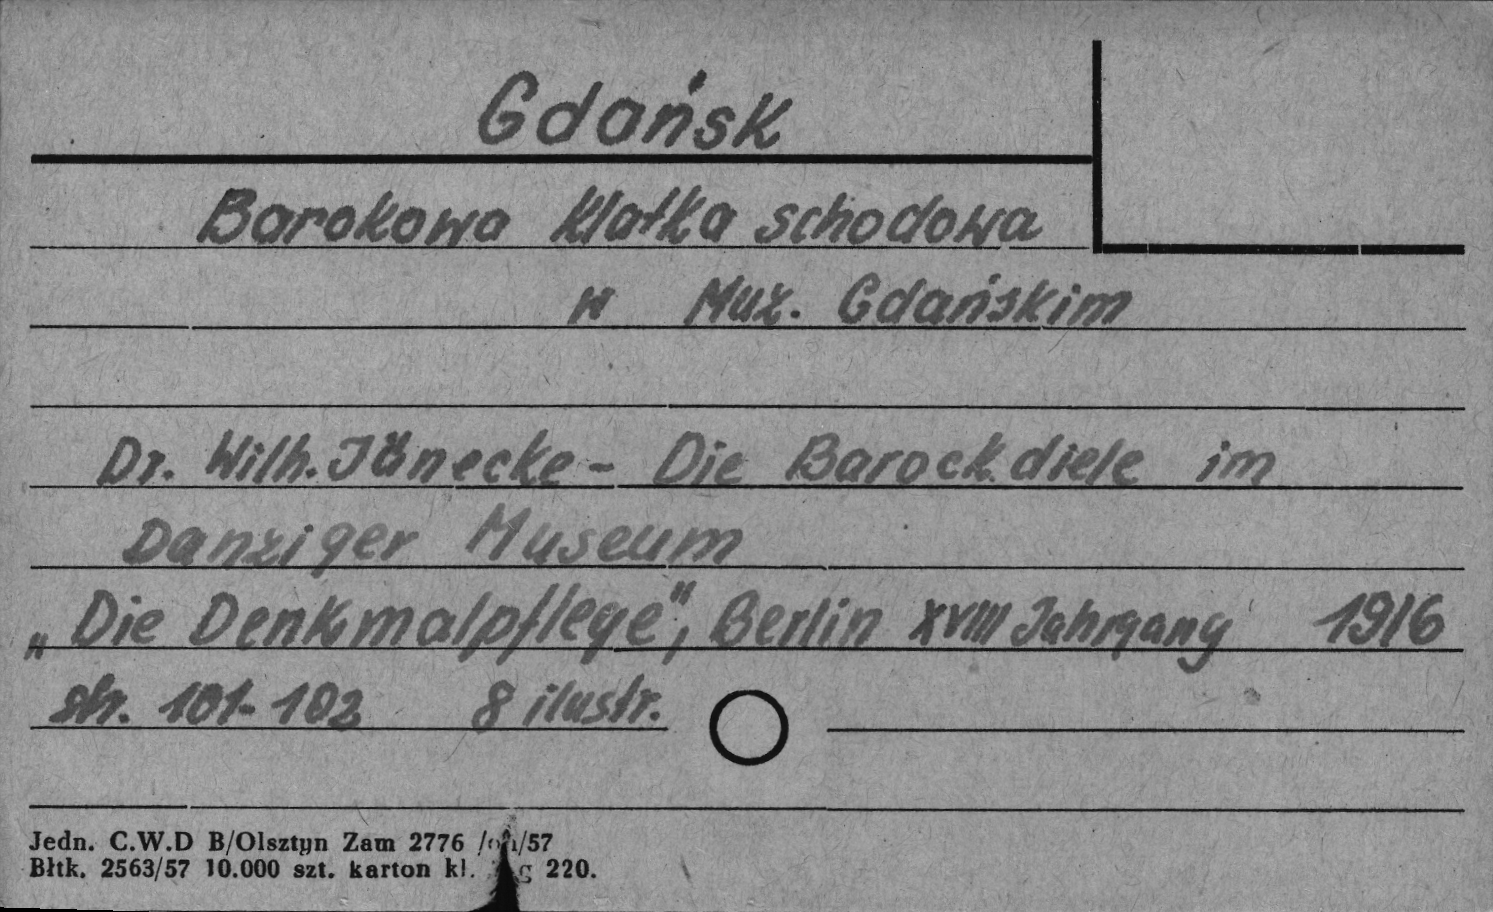 Gdańsk
Barokowa klatka schodowa
w Muz. Gdańskim
Dr. Wilh. Jänecke - Die Barockdiele im
Danziger Museum
„Die Denkmalpflege", Berlin XVIII Jahrgang 1916
str. 101-102 8 ilustr.
Jedn. C.W.D B/Olsztyn Zam 2776 /57
Błtk. 2563/57 10.000 szt. karton kl. 220.